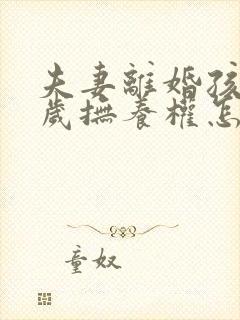 夫妻離婚孩
歲撫養權怎
童奴